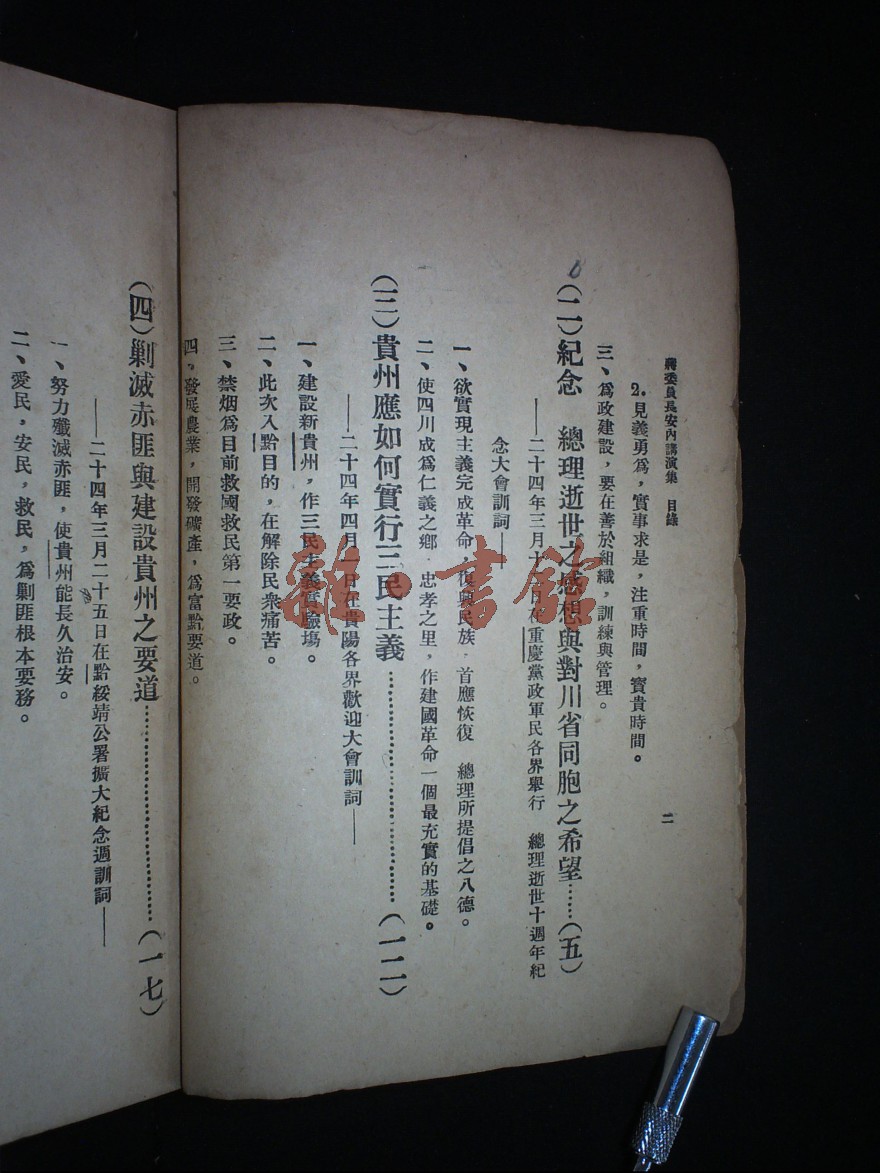 蔣委員長安內講演集　目錄
二
2.見義勇爲，實事求是，注重時間，寶貴時間。
三、爲政建設，要在善於組織，訓練與管理。
（二）紀念　總理逝世之感想與對川省同胞之希望……（五）
——二十四年三月十二日在重慶黨政軍民各界舉行　總理逝世十週年紀
念大會訓詞——
一、欲實現主義完成革命，復興民族，首應恢復　總理所提倡之八德。
二、使四川成爲仁義之鄉，忠孝之里，作建國革命一個最充實的基礎。
（三）貴州應如何實行三民主義……………………（一二）
——二十四年四月一日在貴陽各界歡迎大會訓詞——
一、建設新貴州，作三民主義實驗場。
二、此次入黔目的，在解除民衆痛苦。
三、禁烟爲目前救國救民第一要政。
四、發展農業，開發礦產，爲富黔要道。
（四）剿滅赤匪與建設貴州之要道……………………（一七）
——二十四年三月二十五日在黔綏靖公署擴大紀念週訓詞——
一、努力殲滅赤匪，使貴州能長久治安。
二、愛民，安民，救民，爲剿匪根本要務。
雜·書館